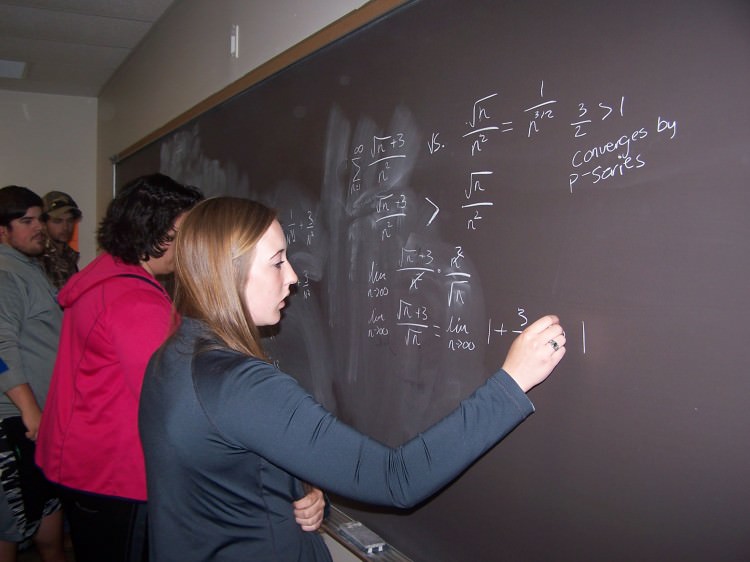 ∞
∑ (√n + 3)/n² vs. √n/n² = 1/n^(3/2) 3/2 > 1
n=1
Converges by
p-series
(√n + 3)/n² > √n/n²
lim n→∞ (√n + 3)/n² · n²/√n
lim n→∞ (√n + 3)/√n = lim n→∞ 1 + 3 1